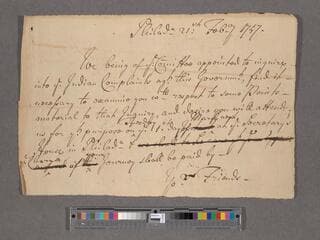 Philada. 21st. Feb'ry 1757.
We being of ye Comittee appointed to inquire
into ye Indian Complaints agst this Government, find it
necessary to examine you wth respect to some Points
material to that Inquiry, and desire you will attend
us for ys purpose on ye at ye Secretary's
House in Philada
Charge of Journey shall be paid by
Yor Friends